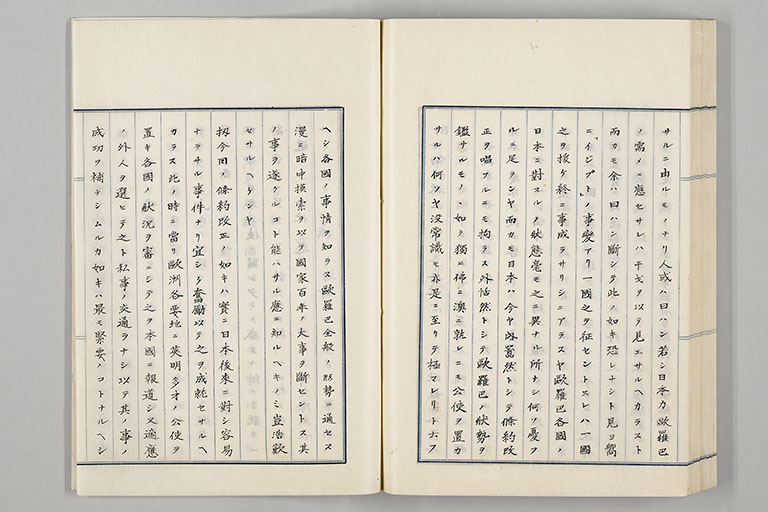 サルニ由ルモノナリ人或ハ曰ハン若シ日本カ歐羅巴
ノ需メニ應セサレハ干戈ヲ以テ見エサルヘカラスト
而カモ余ハ曰ハン斷シテ此ノ如キ恐レナシト見ヨ嚮
ニイジプトノ事變アリ一國之ヲ征セントスレハ一國
之ヲ援ケ終ニ事成ラサリシニアラスヤ歐羅巴各國ノ
日本ニ對スルノ狀態毫モ之ニ異ナル所ナシ何ソ憂フ
ルニ足ランヤ而カモ日本ハ今ヤ囂然トシテ條約改
正ヲ唱フルニモ拘ラス外恬然トシテ歐羅巴ノ狀勢ヲ
鑑サルモノヽ如ク獨ニ佛ニ澳ニ孰レニモ公使ヲ置カ
サルハ何ソヤ沒常識モ亦是ニ至リテ極マレリト云フ
ヘシ各國ノ事情ヲ知ラス歐羅巴全般ノ形勢ニ通セス
漫ニ暗中摸索ヲ以テ國家百年ノ大事ヲ斷セントス其
ノ事ヲ遂クルコト能ハサル應ニ知ルヘキノミ豈浩歎
セサルヘケンヤ
扨今囘ノ條約改正ノ如キハ實ニ日本後來ニ對シ容易
ナラサル事件ナリ宜シク奮勵以テ之ヲ成就セサルヘ
カラス此ノ時ニ當リ歐洲各要地ニ英明多才ノ公使ヲ
置キ各國ノ狀況ヲ審ニシテ之ヲ本國ニ報道シ又適應
ノ外人ヲ選ヒテ之ト私事ノ交通ヲナシ以テ其ノ事ノ
成功ヲ補ナシムルカ如キハ最モ緊要ノコトナルヘシ